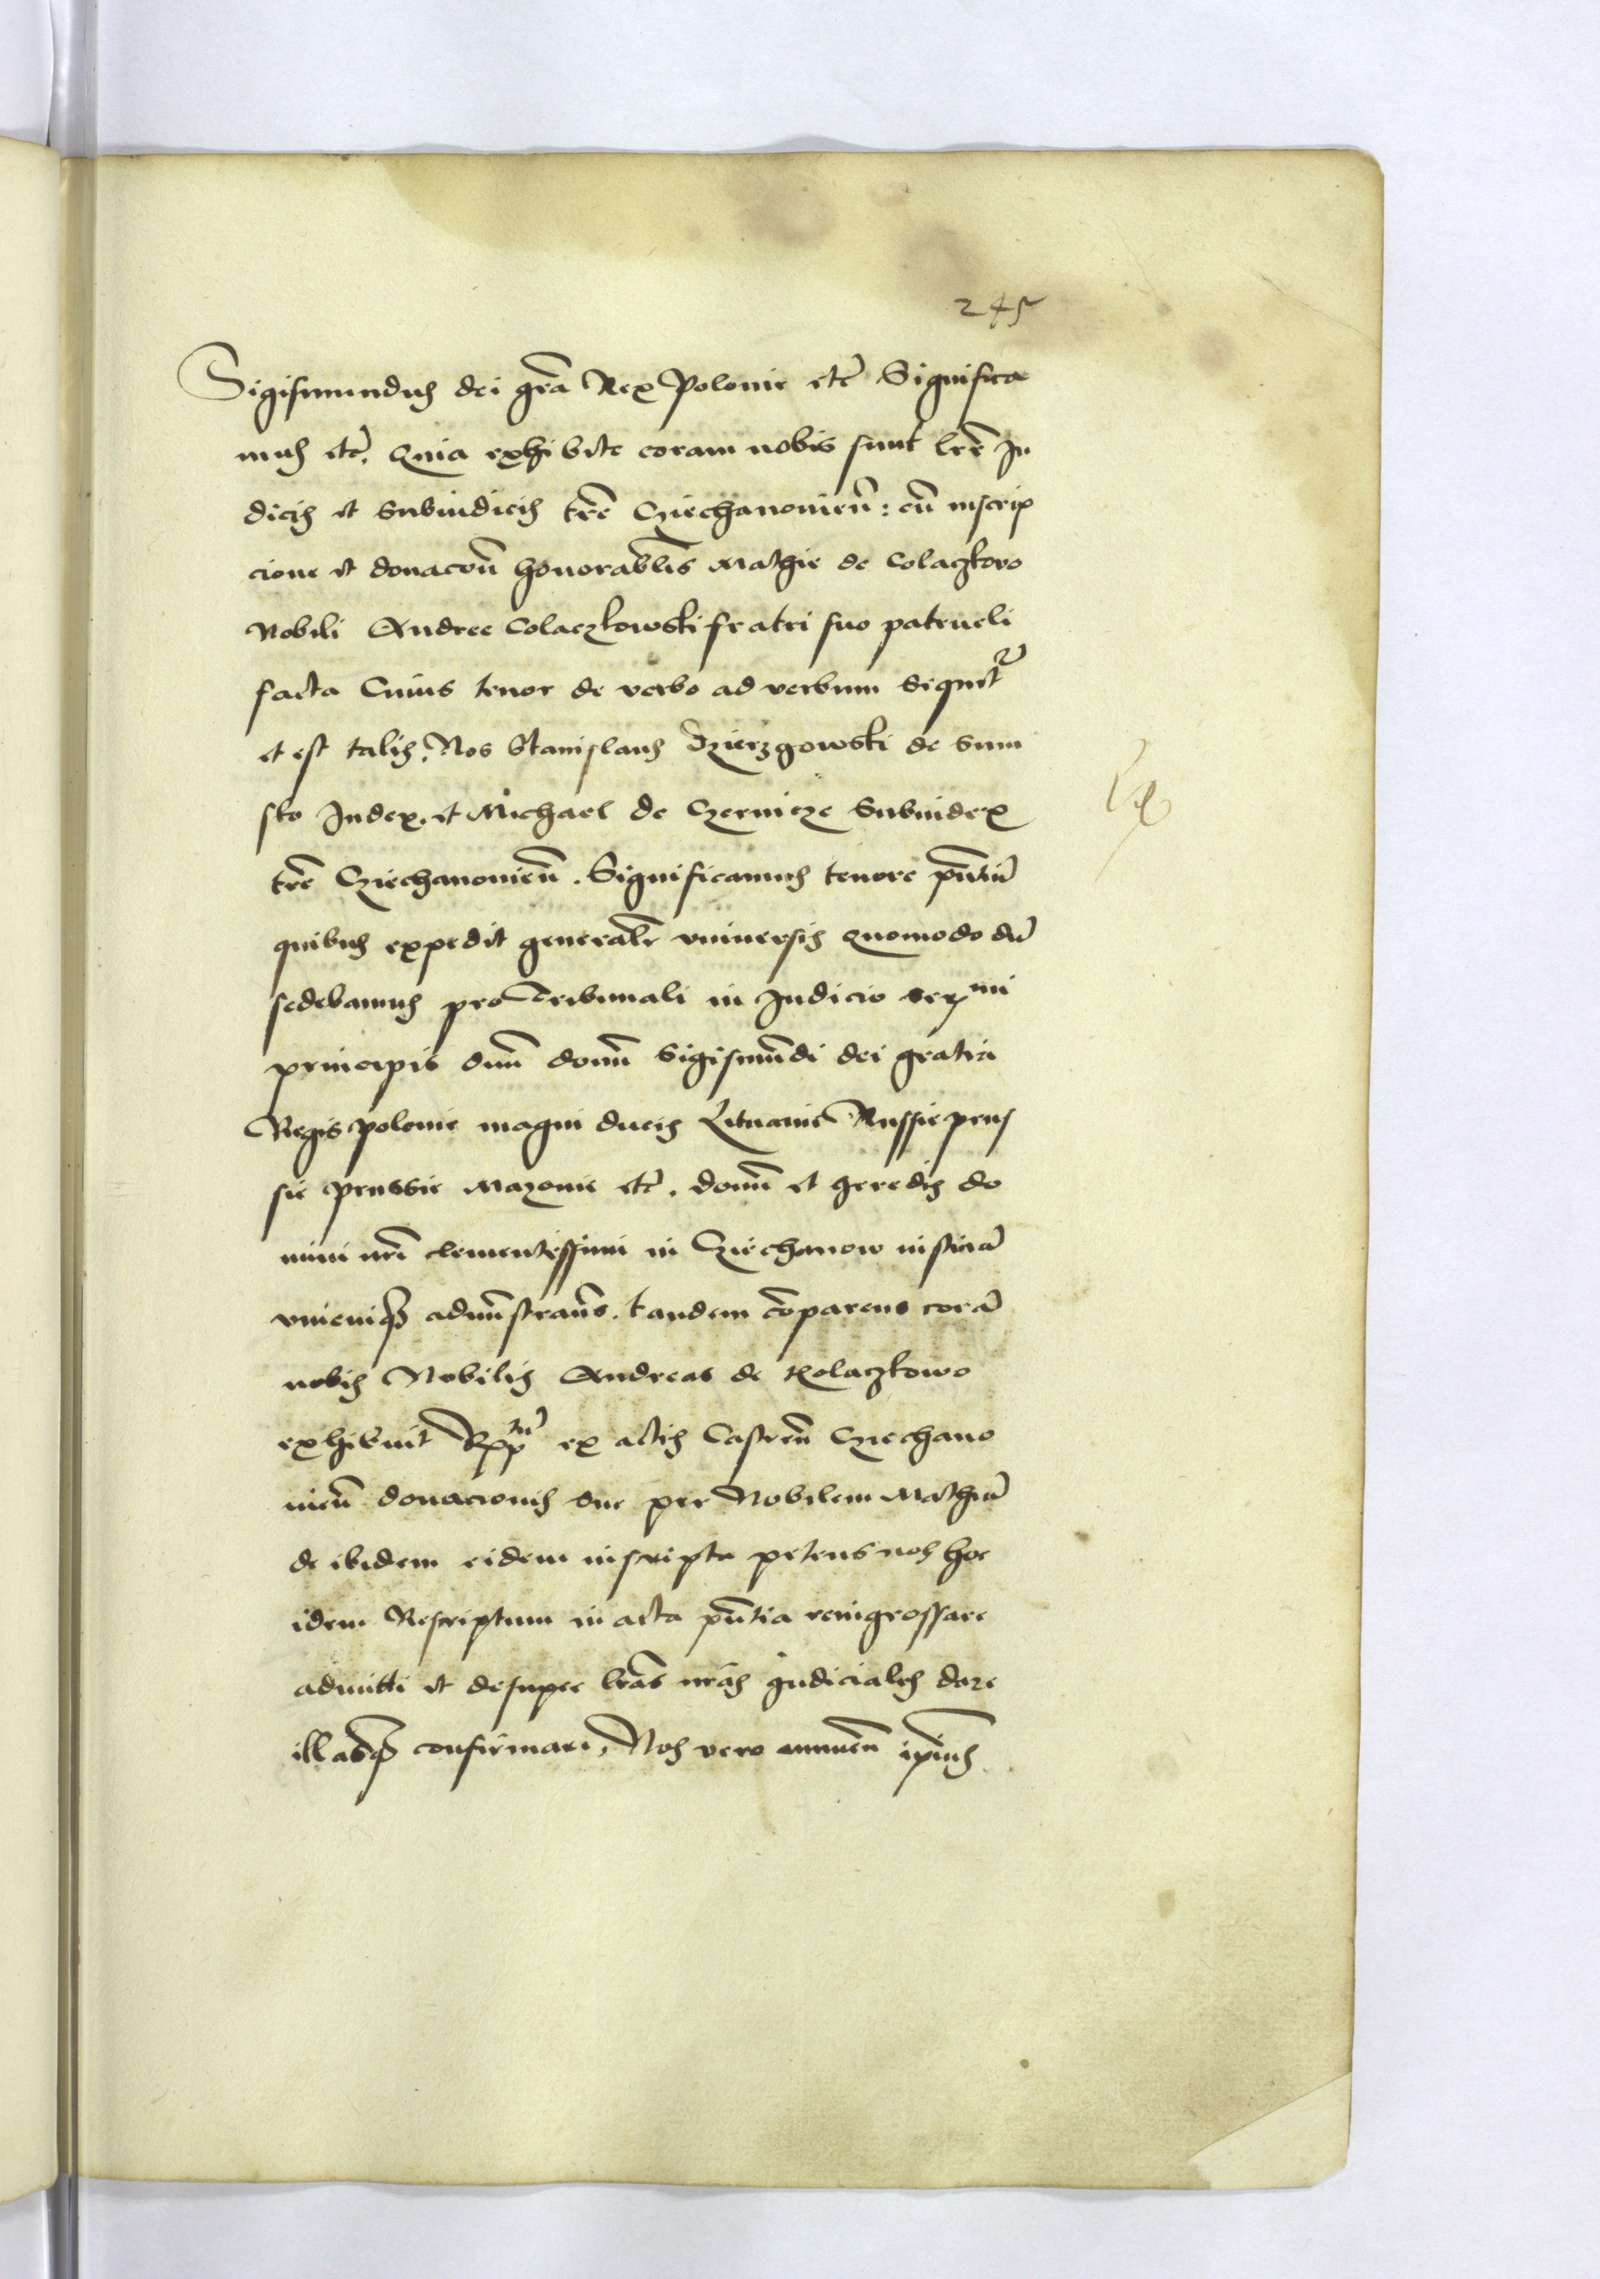 245
Sigismundus dei gra Rex Polonie etc Significa
mus etc. Quia exhibite coram nobis sunt lre Ju
dicis et Subiudicis tre Cziechanouien: cu inscrip
cione et donacon honorablis Mathie de Colaczkovo
Nobili Andree Colaczkowski fratri suo patrueli
facta Cuius tenor de verbo ad verbum sequitr
et est talis, Nos Stanislaus Dzierzgowski de Sum
sko Judex. et Michael de Czernicze Subiudex
tre Cziechanonien. Significamus tenore pntiu
quibus expedit generalr vniuersis Quomodo du
sedebamus pro Tribunali in Judicio sermi
principis dnn domn Sigismundi dei gratia
Regis polonie magni ducis Lituanie Russie prus
sie prussie Mazouie etc. domn et heredis do
mini nri clementissimi in Cziechanow iusticia
vnicuiq admnstrans. tandem coparens cora
nobis Nobilis Andreas de Kolaczkowo
exhibuit Rptu ex actis Castren Cziechano
nien donacionis sue per Nobilem Mathia
de ibidem eidem inscripta petens nos hoc
idem Rescriptum in acta pntia reingrossare
admitti et desuper lras nras judiciales dare
illasq confirmari, Nos vero annuen ipius